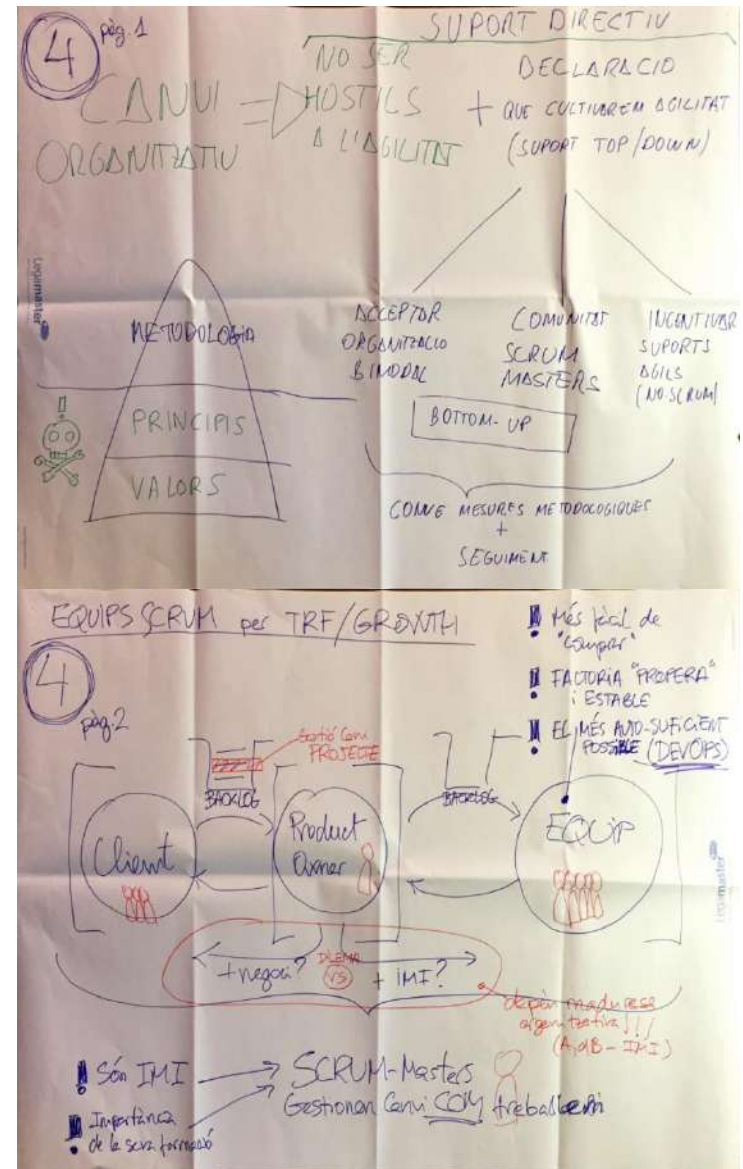 4
pàg. 1
SUPORT DIRECTIU
CANVI
ORGANITZATIU
NO SER
HOSTILS
A L'AGILITAT
+
DECLARACIO
QUE CULTIVAREM AGILITAT
(SUPORT TOP/DOWN)
Legamaster
METODOLOGIA
PRINCIPIS
VALORS
!
ACCEPTAR
ORGANITZACIO
BIMODAL
COMUNITAT
SCRUM
MASTERS
INCENTIVAR
SUPORTS
AGILS
(NO SCRUM)
BOTTOM-UP
CONVE MESURES METODOLOGIQUES
+
SEGUIMENT
EQUIPS SCRUM per TRF/GROWTH
4
pàg. 2
! Més fàcil de
"comprar"
! FACTORIA "PROPERA"
i ESTABLE
! EL MÉS AUTO-SUFICIENT
POSSIBLE (DEVOPS)
Gestió Canvi
PROJECTE
BACKLOG
BACKLOG
Client
Product
Owner
EQUIP
Legamaster
+ negoci?
DILEMA
VS
+ IMI?
depèn maduresa
organitzativa!!!
(AjdB - IMI)
! Són IMI
! Importància
de la seva formació
SCRUM-Masters
Gestionen Canvi COM